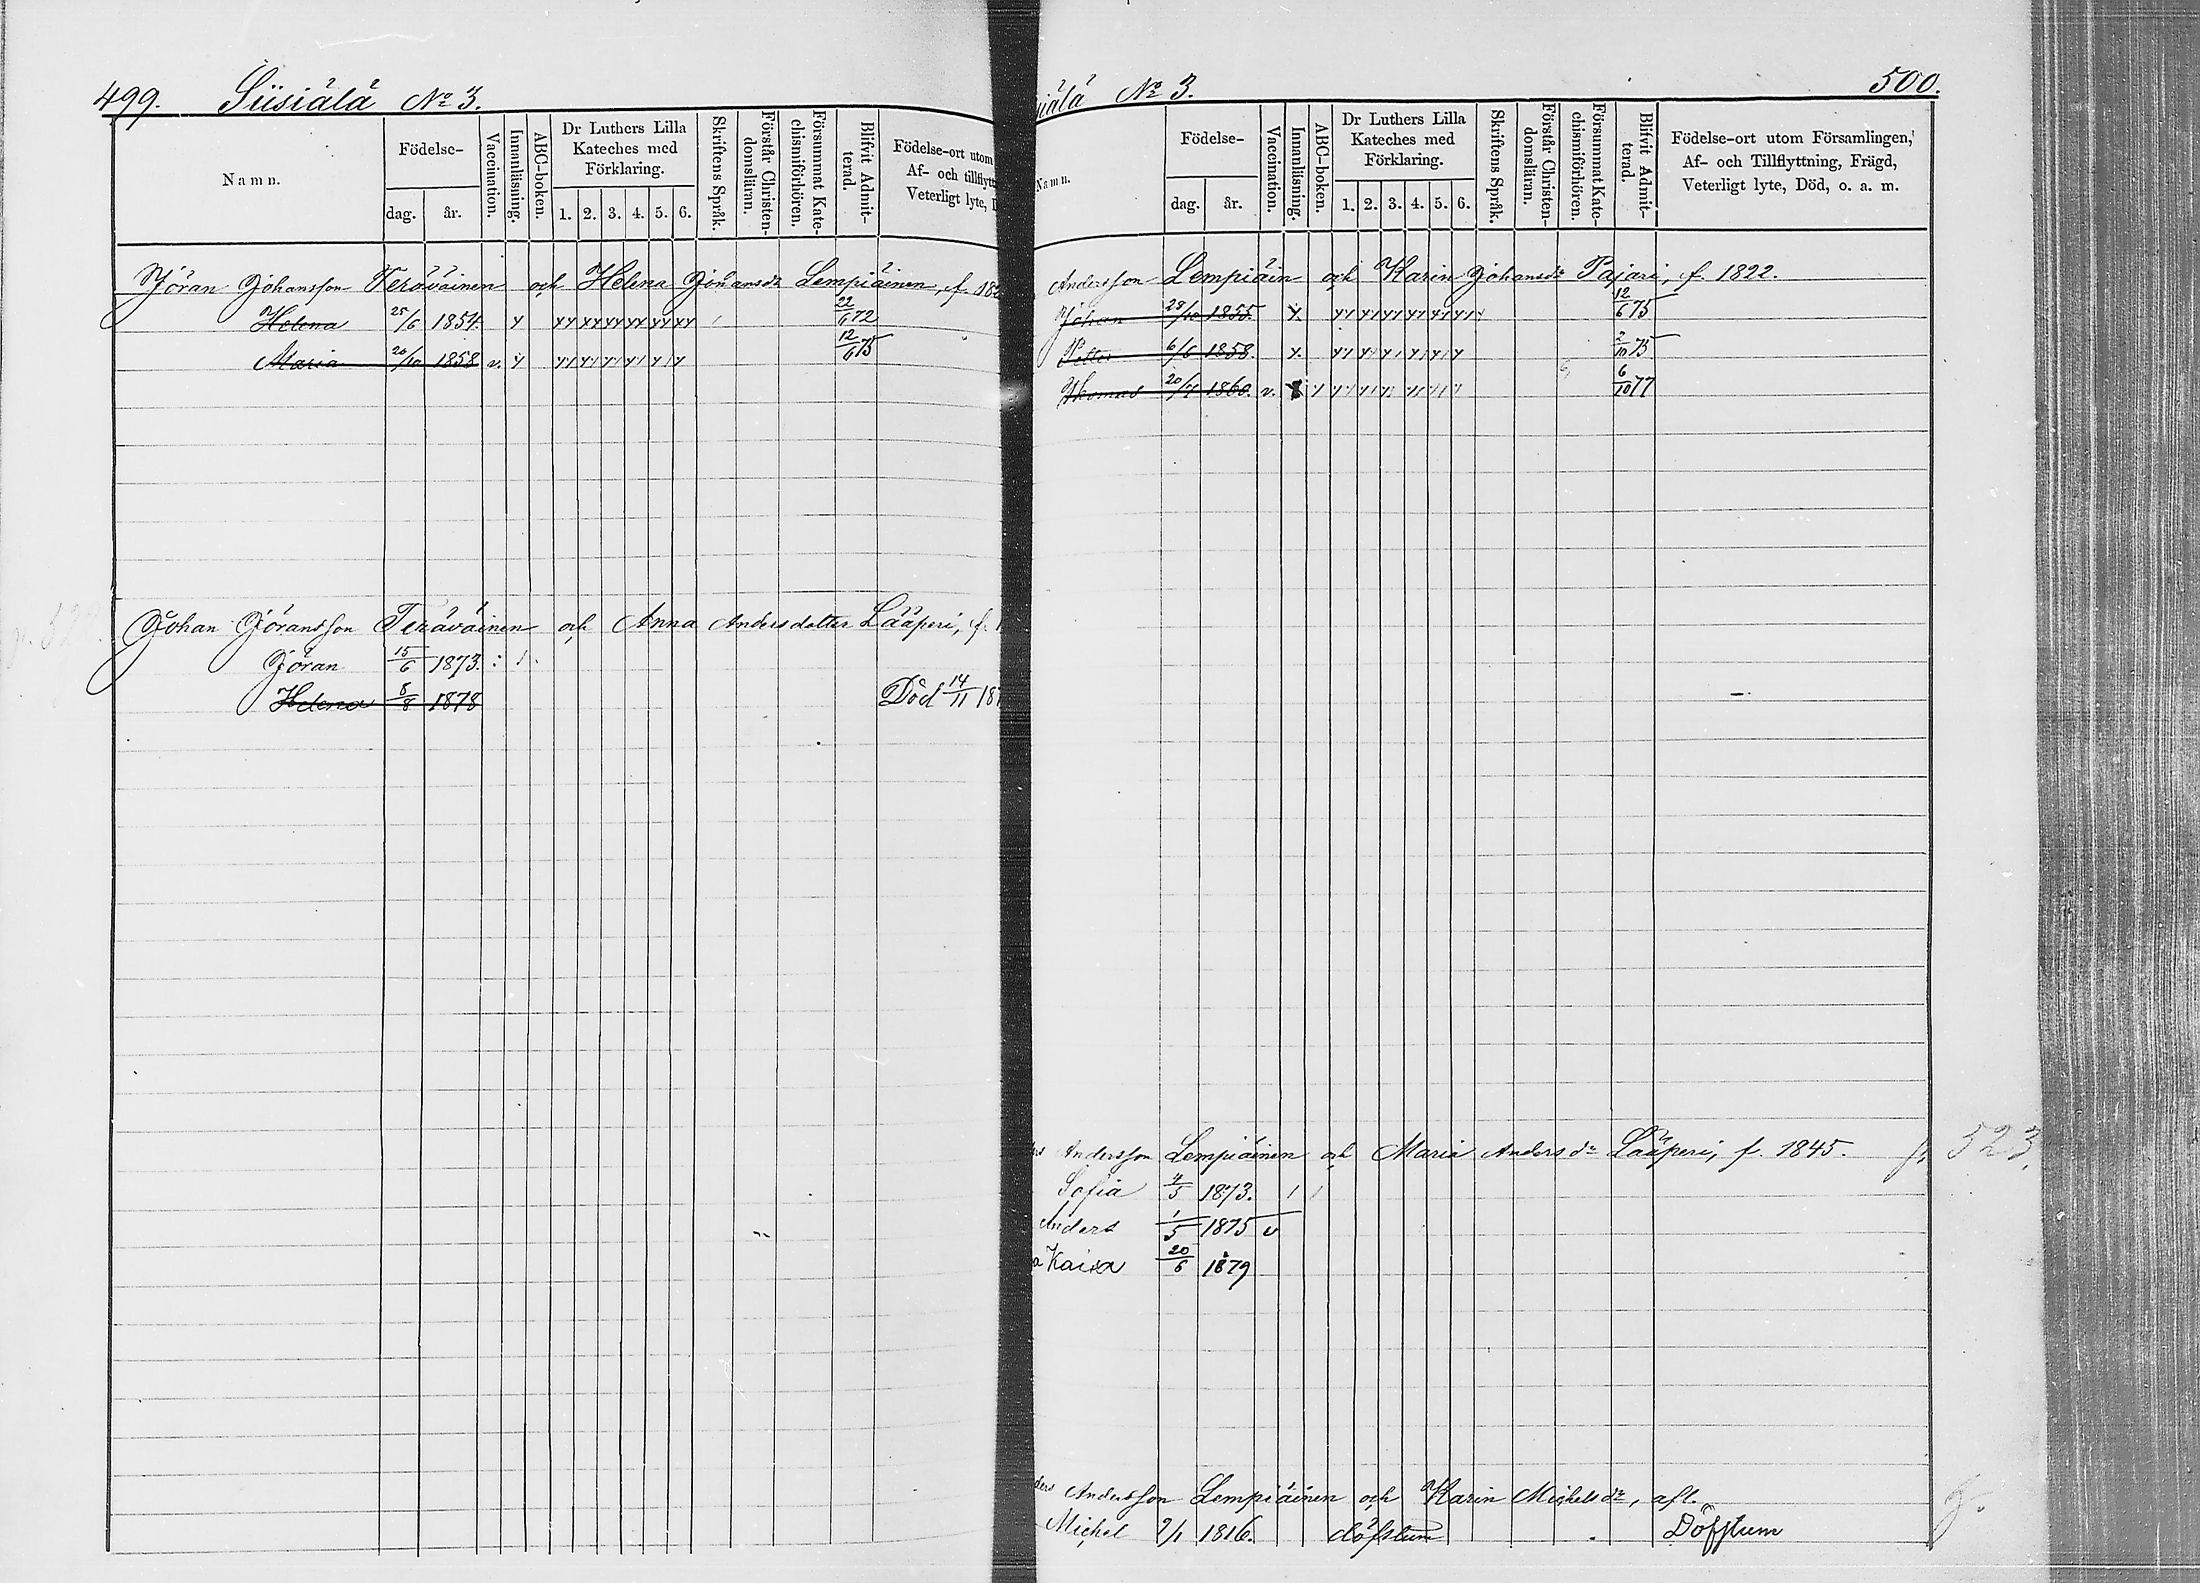 499. Siisiälä No 3.
Namn.
Födelse-
dag. år.
Vaccination.
Innanläsning.
ABC-boken.
Dr Luthers Lilla
Kateches med
Förklaring.
1. 2. 3. 4. 5. 6.
Skriftens Språk.
Förstår Christen-
domsläran.
Försummat Kate-
chismiförhören.
Blifvit Admit-
terad.
Födelse-ort utom
Af- och tillflytt
Veterligt lyte,
Jöran Johansson Teräväinen och Helena Johansdr Lempiäinen, f. 182
Helena 25/6 1854. 22/6 72
Maria 20/10 1858 v. 12/6 75
Johan Göransson Teräväinen och Anna Andersdotter Lääperi, f. 1
Jöran 15/6 1873.
Helena 8/8 1878 Död 14/11 187
iälä No 3. 500.
Namn.
Födelse-
dag. år.
Vaccination.
Innanläsning.
ABC-boken.
Dr Luthers Lilla
Kateches med
Förklaring.
1. 2. 3. 4. 5. 6.
Skriftens Språk.
Förstår Christen-
domsläran.
Försummat Kate-
chismiförhören.
Blifvit Admit-
terad.
Födelse-ort utom Församlingen,
Af- och Tillflyttning, Frägd,
Veterligt lyte, Död, o. a. m.
Andersson Lempiäin och Karin Johansdr Pajari, f. 1822.
Johan 28/10 1855. 12/6 75
Petter 6/6 1858. 2/10 75
Thomas 1860. v. 6/10 77
Andersson Lempiäinen och Maria Andersdr Lääperi, f. 1845. 523.
Sofia 4/5 1873.
Anders 1/5 1875 v
a Kaisa 20/6 1879
ders Andersson Lempiäinen och Karin Michelsdr, afl.
Michel 2/1 1816. döfstum Döfstum